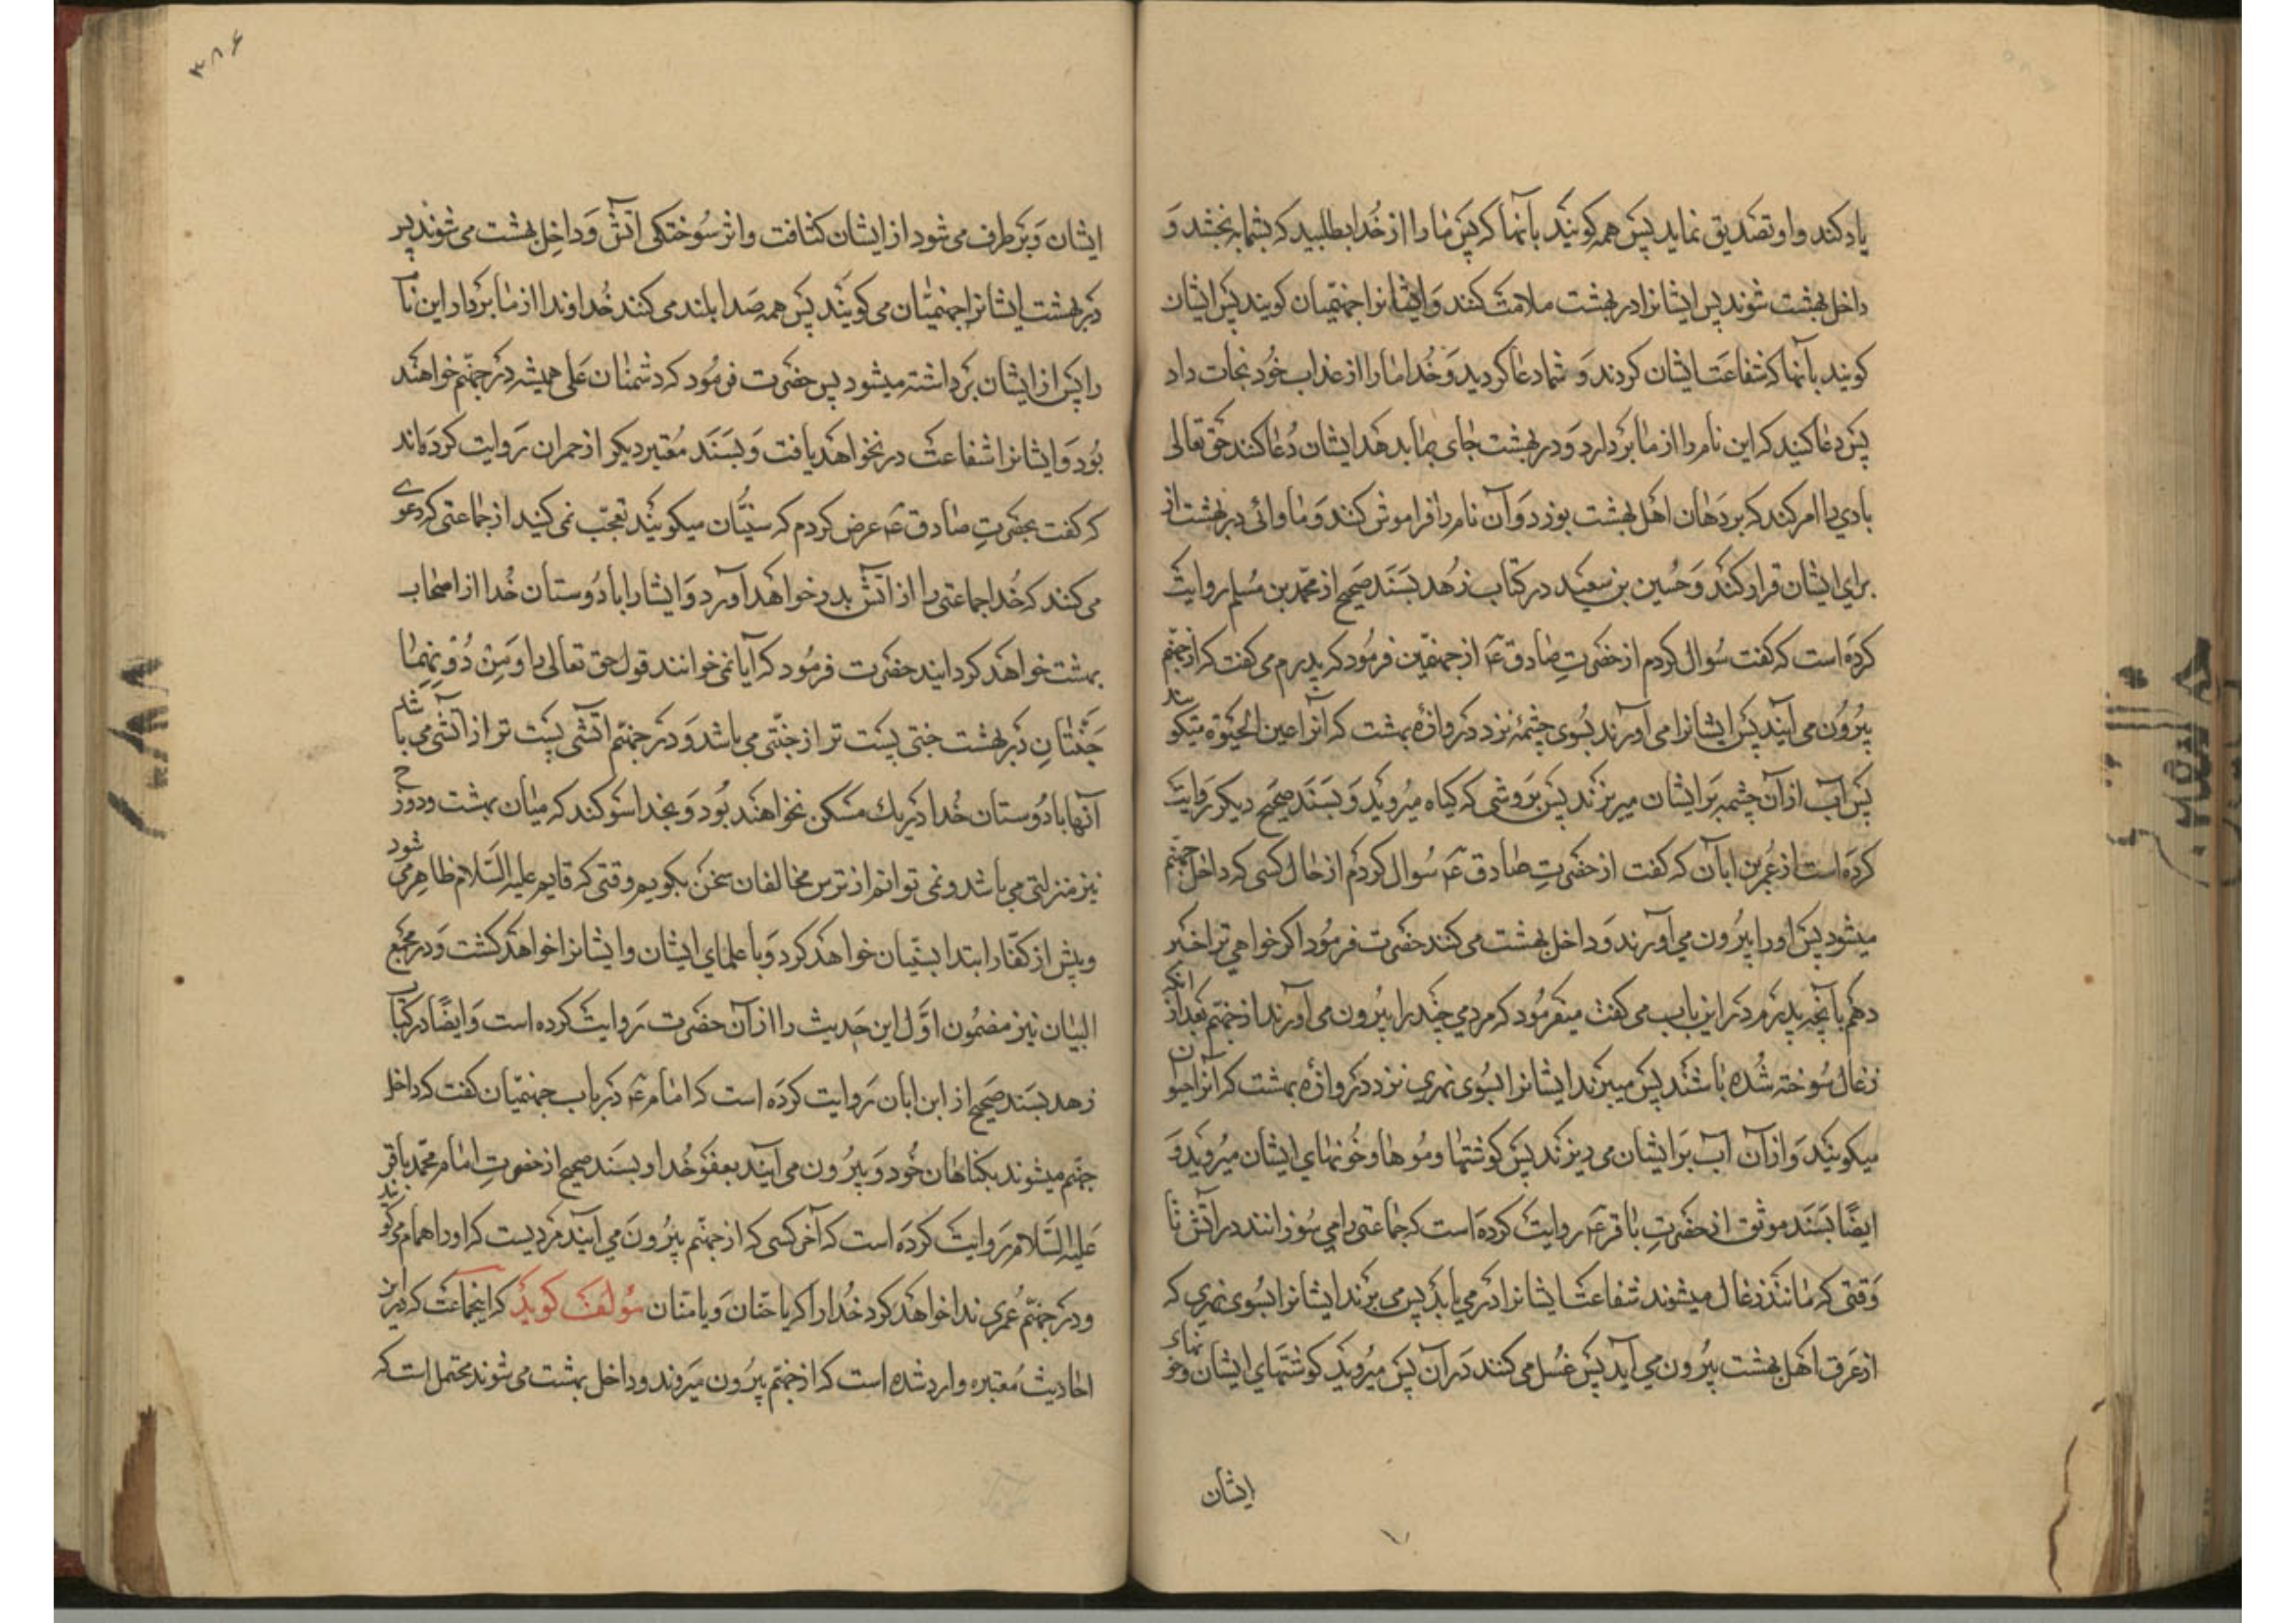 یاد کند و او تصدیق نماید پس همه کویند بآنها که پس ما را از خدا بطلبید که بشما به بخشد و
داخل بهشت شوند پس ایشانرا در بهشت ملامت کنند و ایشانرا جهنمیان کویند پس ایشان
کویند بآنها که شفاعت ایشان کردند و شما دعا کردید و خدا ما را از عذاب خود نجات داد
پس دعا کنید که این نام را از ما بردارد و در بهشت جای بما بدهد ایشان دعا کنند حق تعالی
بادی را امر کند که بر دهان اهل بهشت بوزد و آن نام را فراموش کنند و ماوائی در بهشت از
برای ایشان قرار کند و حسین بن سعید در کتاب زهد بسند صحیح از محمد بن مسلم روایت
کرده است که کفت سوال کردم از حضرت صادق ع از جهنمیین فرمود که پدرم می کفت که از جهنم
بیرون می آیند پس ایشانرا می آورند بسوی چشمۀ نزد دروازۀ بهشت که آنرا عین الحیوة میکو یند
پس آب از آن چشمه بر ایشان میریزند پس بروشی که کیاه میروید و بسند صحیح دیکر روایت
کرده است از عمر بن ابان که کفت از حضرت صادق ع سوال کردم از حال کسی که داخل جهنم
میشود پس او را بیرون می آورند و داخل بهشت می کنند حضرت فرمود اکر خواهی ترا خبر
دهم بآنچه پدرم در این باب می کفت میفرمود که مردمی چند را بیرون می آورند از جهنم بعد از انکه
زغال سوخته شده باشند پس میبرند ایشانرا بسوی نهری نزد دروازه بهشت که آنرا حیوان
میکویند و از آن آب بر ایشان می ریزند پس کوشتها و موها و خونهای ایشان میروید و
ایضا بسند موثق از حضرت باقر ع روایت کرده است که جماعتی را می سوزانند در آتش تا
وقتی که مانند زغال میشوند شفاعت ایشانرا در می یابد پس می برند ایشانرا بسوی نهری که
از عرق اهل بهشت بیرون می آید پس غسل می کنند در آن پس میروید کوشتهای ایشان و خو نهای
ایشان
۳۸۶
ایشان و برطرف می شود از ایشان کثافت و اثر سوختکی آتش و داخل بهشت می شوند پس
در بهشت ایشانرا جهنمیان می کویند پس همه صدا بلند می کنند خداوندا از ما بردار این نام
را پس از ایشان برداشته میشود پس حضرت فرمود که دشمنان علی همیشه در جهنم خواهند
بود و ایشانرا شفاعت در نخواهد یافت و بسند معتبر دیکر از حمران روایت کرده اند
که کفت بحضرت صادق ع عرض کردم که سنیان میکویند تعجب نمی کنید از جماعتی که دعوی
می کنند که خدا جماعتی را از آتش بدر خواهد آورد و ایشانرا با دوستان خدا از اصحاب
بهشت خواهد کردانید حضرت فرمود که آیا نمی خوانند قول حق تعالی را و من دونهما
جنتان در بهشت جنتی پست تر از جنتی می باشد و در جهنم آتشی پست تر از آتشی می با شد
آنها با دوستان خدا در یك مسکن نخواهند بود و بخدا سوکند که میان بهشت و دوزخ
نیز منزلتی می باشد و نمی توانم از ترس مخالفان سخن بکویم وقتی که قایم علیه السلام ظاهر می شود
و پیش از کفار ابتدا بسنیان خواهد کرد و با علمای ایشان و ایشانرا خواهد کشت و در مجمع
البیان نیز مضمون اول این حدیث را از آن حضرت روایت کرده است و ایضا در کتاب
زهد بسند صحیح از ابن ابان روایت کرده است که امام ع در باب جهنمیان کفت که داخل
جهنم میشوند بکناهان خود و بیرون می آیند بعفو خدا و بسند صحیح از حضرت امام محمد باقر
علیه السلام روایت کرده است که آخر کسی که از جهنم بیرون می آیند مردیست که او را همام می کو یند
و در جهنم عمری ندا خواهد کرد خدا را که یا حنان و یا منان مولف کوید که اینجماعت که در این
احادیث معتبره وارد شده است که از جهنم بیرون میروند و داخل بهشت می شوند محتمل است که